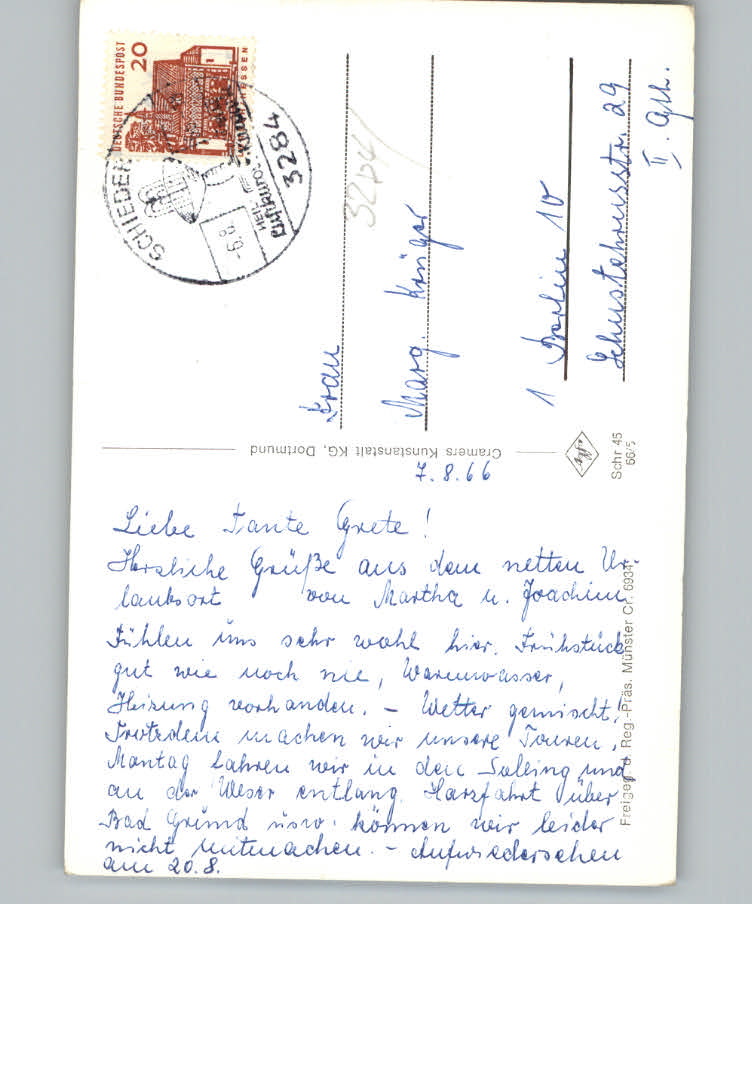 DEUTSCHE BUNDESPOST
20
SCHIEDER
3284
Frau
Marg. Krüger
1 Berlin 10
Schustehrusstr. 29
II. Gth.
Cramers Kunstanstalt KG, Dortmund
Schr 45
66/5
Freigeg. d. Reg.-Präs. Münster Cr. 6934
7.8.66
Liebe Tante Grete!
Herzliche Grüße aus dem netten Ur-
laubsort von Martha u. Joachim
Fühlen uns sehr wohl hier. Frühstück
gut wie noch nie, Warmwasser,
Heizung vorhanden. – Wetter gemischt,
Trotzdem machen wir unsere Touren,
Montag fahren wir in den Solling und
an der Weser entlang. Harzfahrt über
Bad Grund usw. können wir leider
nicht mitmachen. – Aufwiedersehen
am 20.8.